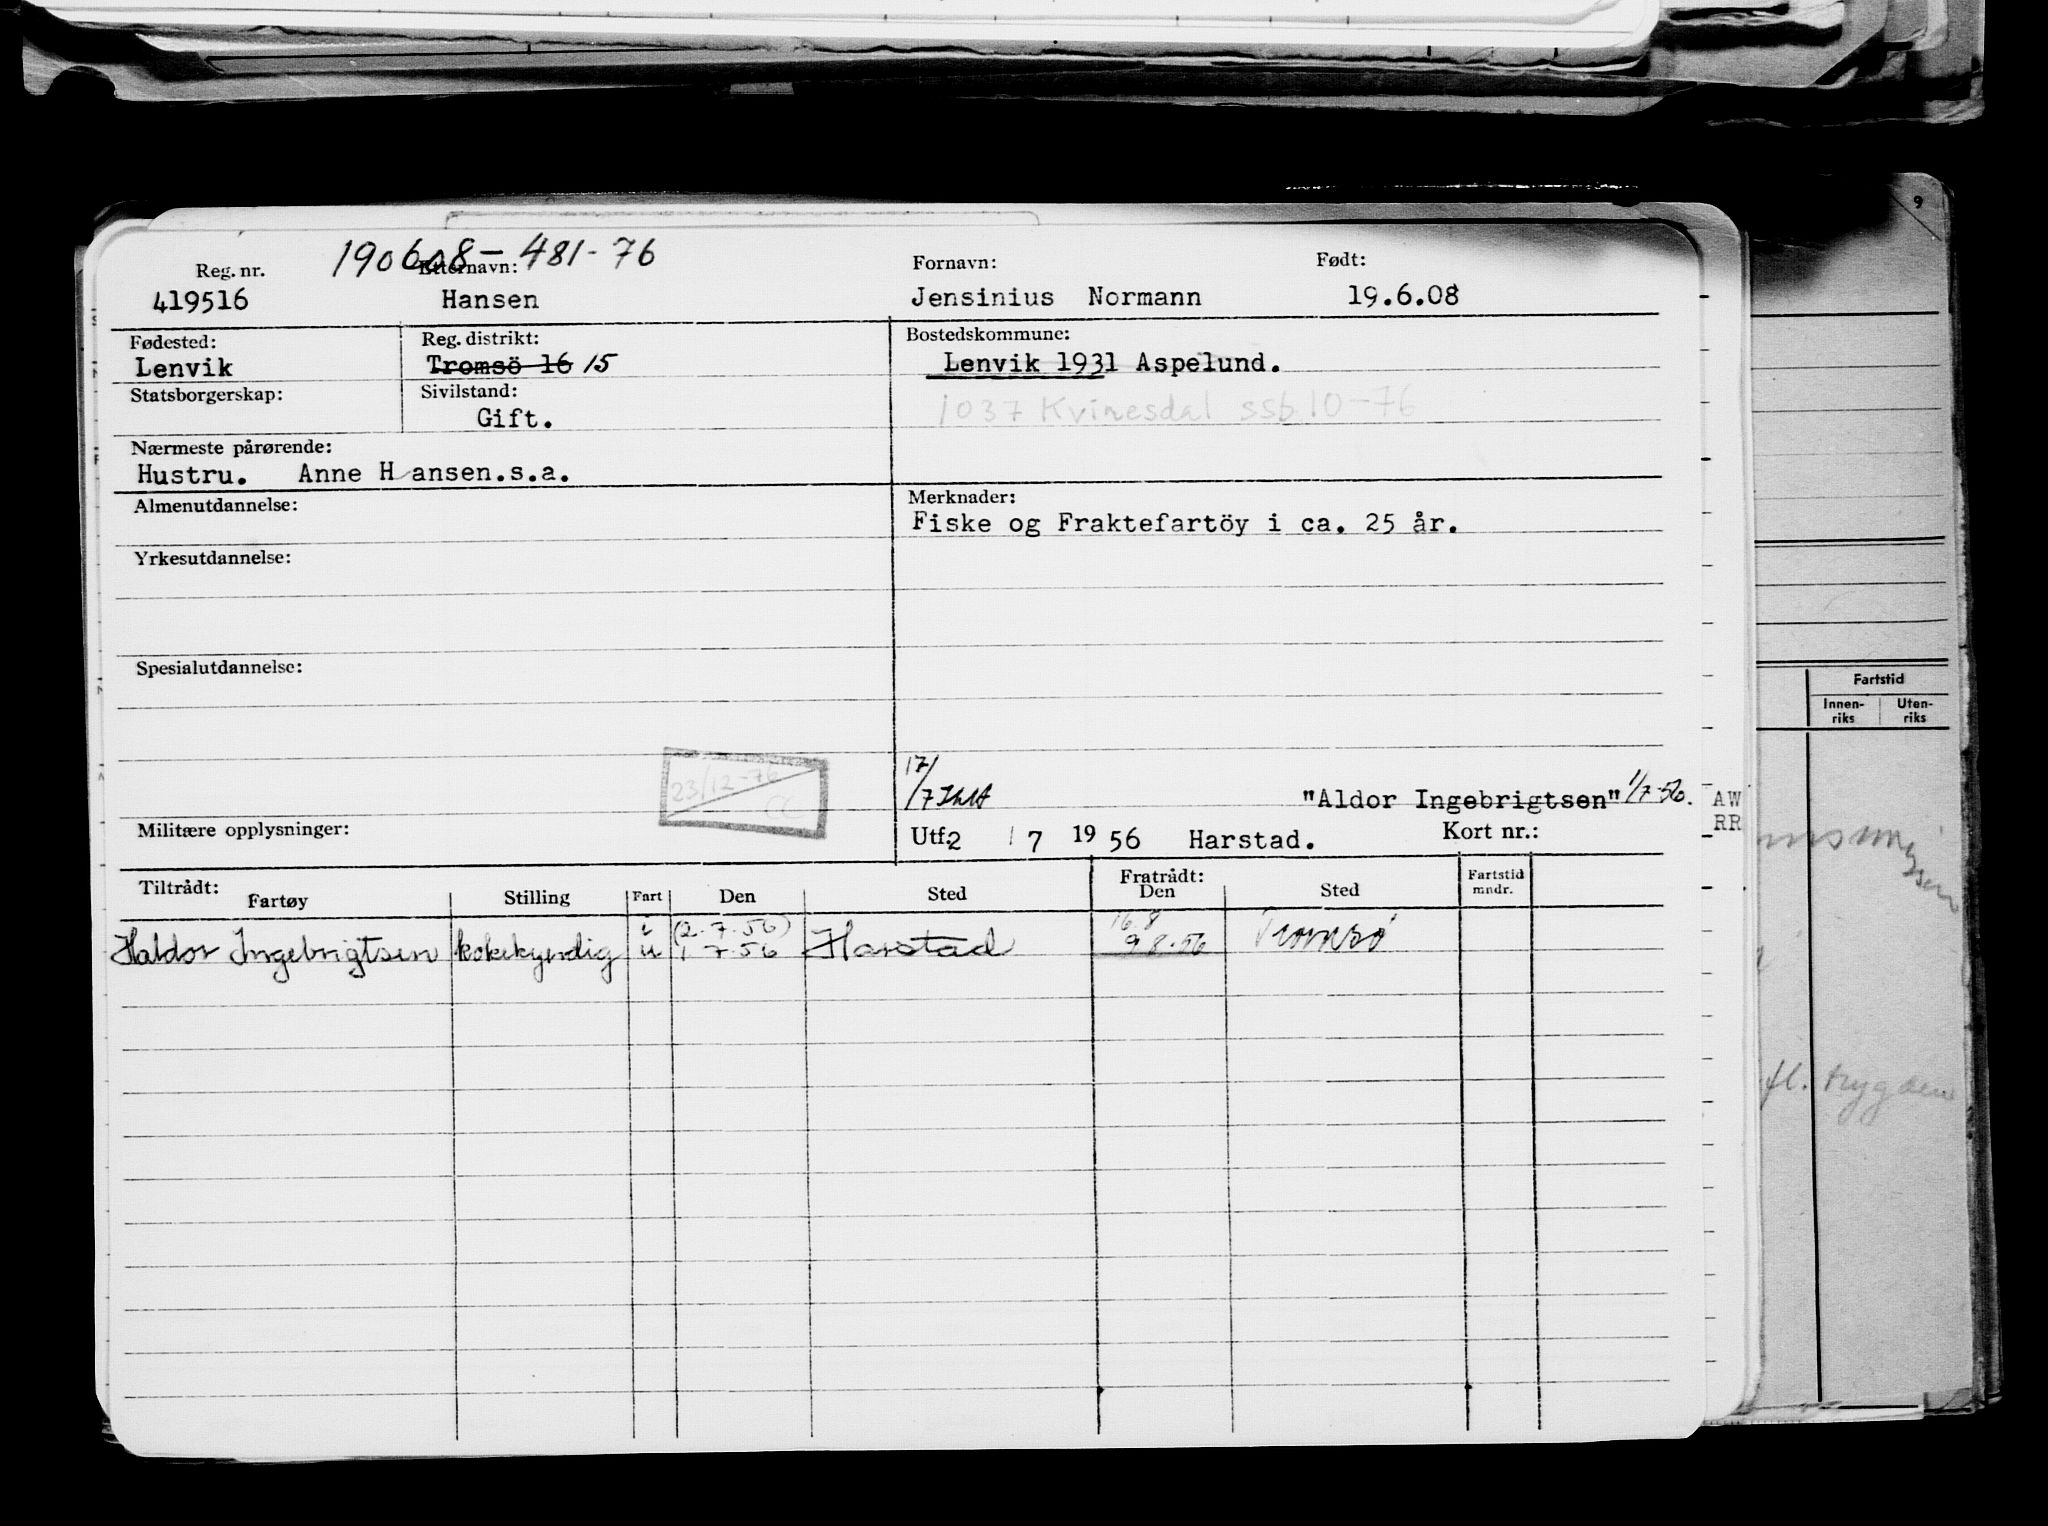 9
190608-481-76
Reg. nr. Etternavn: Fornavn: Født:
419516 Hansen Jensinius Normann 19.6.08
Fødested: Reg. distrikt: Bostedskommune:
Lenvik Tromsö 16 15 Lenvik 1931 Aspelund.
Statsborgerskap: Sivilstand:
Gift. 1037 Kvinesdal ssb 10-76
Nærmeste pårørende:
Hustru. Anne Hansen.s.a.
Almenutdannelse: Merknader:
Fiske og Fraktefartöy i ca. 25 år.
Yrkesutdannelse:
Spesialutdannelse:
23/12-76
CC
17/
/7 "Aldor Ingebrigtsen" 1/7-56.
Militære opplysninger: Utf. 2 / 7 19 56 Harstad. Kort nr.:
Tiltrådt: Fratrådt: Fartstid
Fartøy Stilling Fart Den Sted Den Sted mndr.
i (2.7.56) 16.8
Haldor Ingebrigtsen kokekyndig u 1.7.56 Harstad 9.8.56 Tromsø
Fartstid
Innen- Uten-
riks riks
AW
RR
fl. trygden